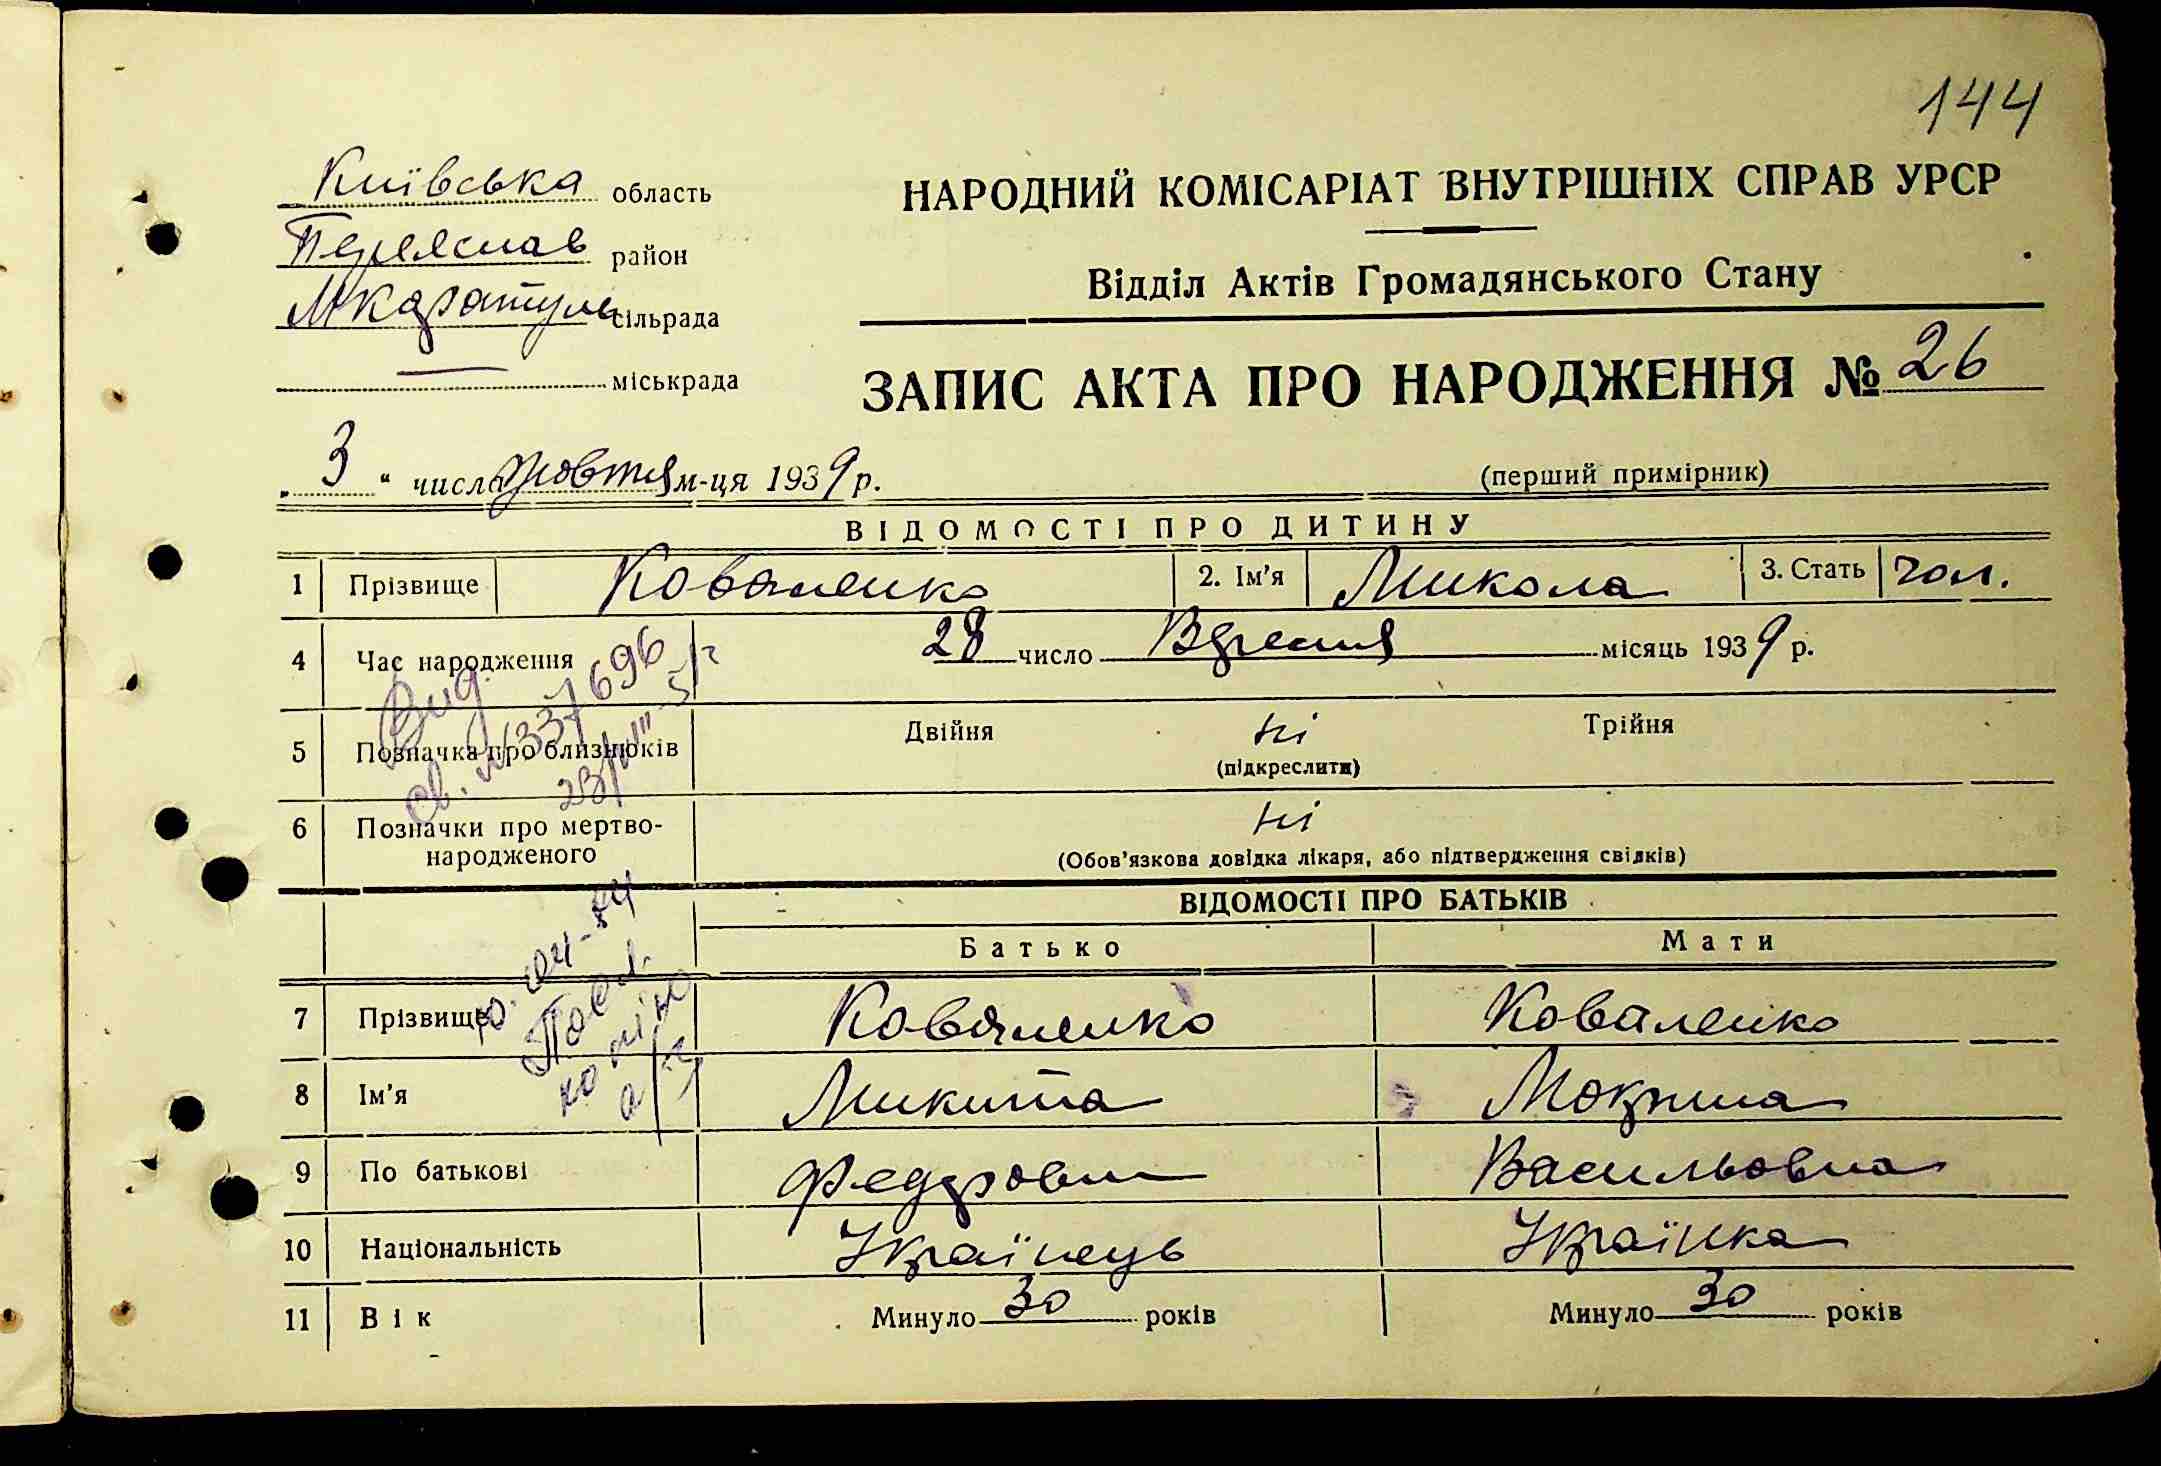 144
Київська область
Переяслав район
Мкаратуль сільрада
міськрада
НАРОДНИЙ КОМІСАРІАТ ВНУТРІШНІХ СПРАВ УРСР
Відділ Актів Громадянського Стану
ЗАПИС АКТА ПРО НАРОДЖЕННЯ № 26
„ 3 " числа жовтня м-ця 1939 р.
(перший примірник)
ВІДОМОСТІ ПРО ДИТИНУ
1 Прізвище Коваленко 2. Ім'я Микола 3. Стать чол.
4 Час народження 28 число Вересня місяць 1939 р.
5 Позначка про близнюків Двійня ні Трійня
(підкреслити)
6 Позначки про мертво-
народженого ні
(Обов'язкова довідка лікаря, або підтвердження свідків)
ВІДОМОСТІ ПРО БАТЬКІВ
Батько Мати
7 Прізвище Коваленко Коваленко
8 Ім'я Микита Мокрина
9 По батькові Федорович Васильовна
10 Національність Українець Українка
11 Вік Минуло 30 років Минуло 30 років